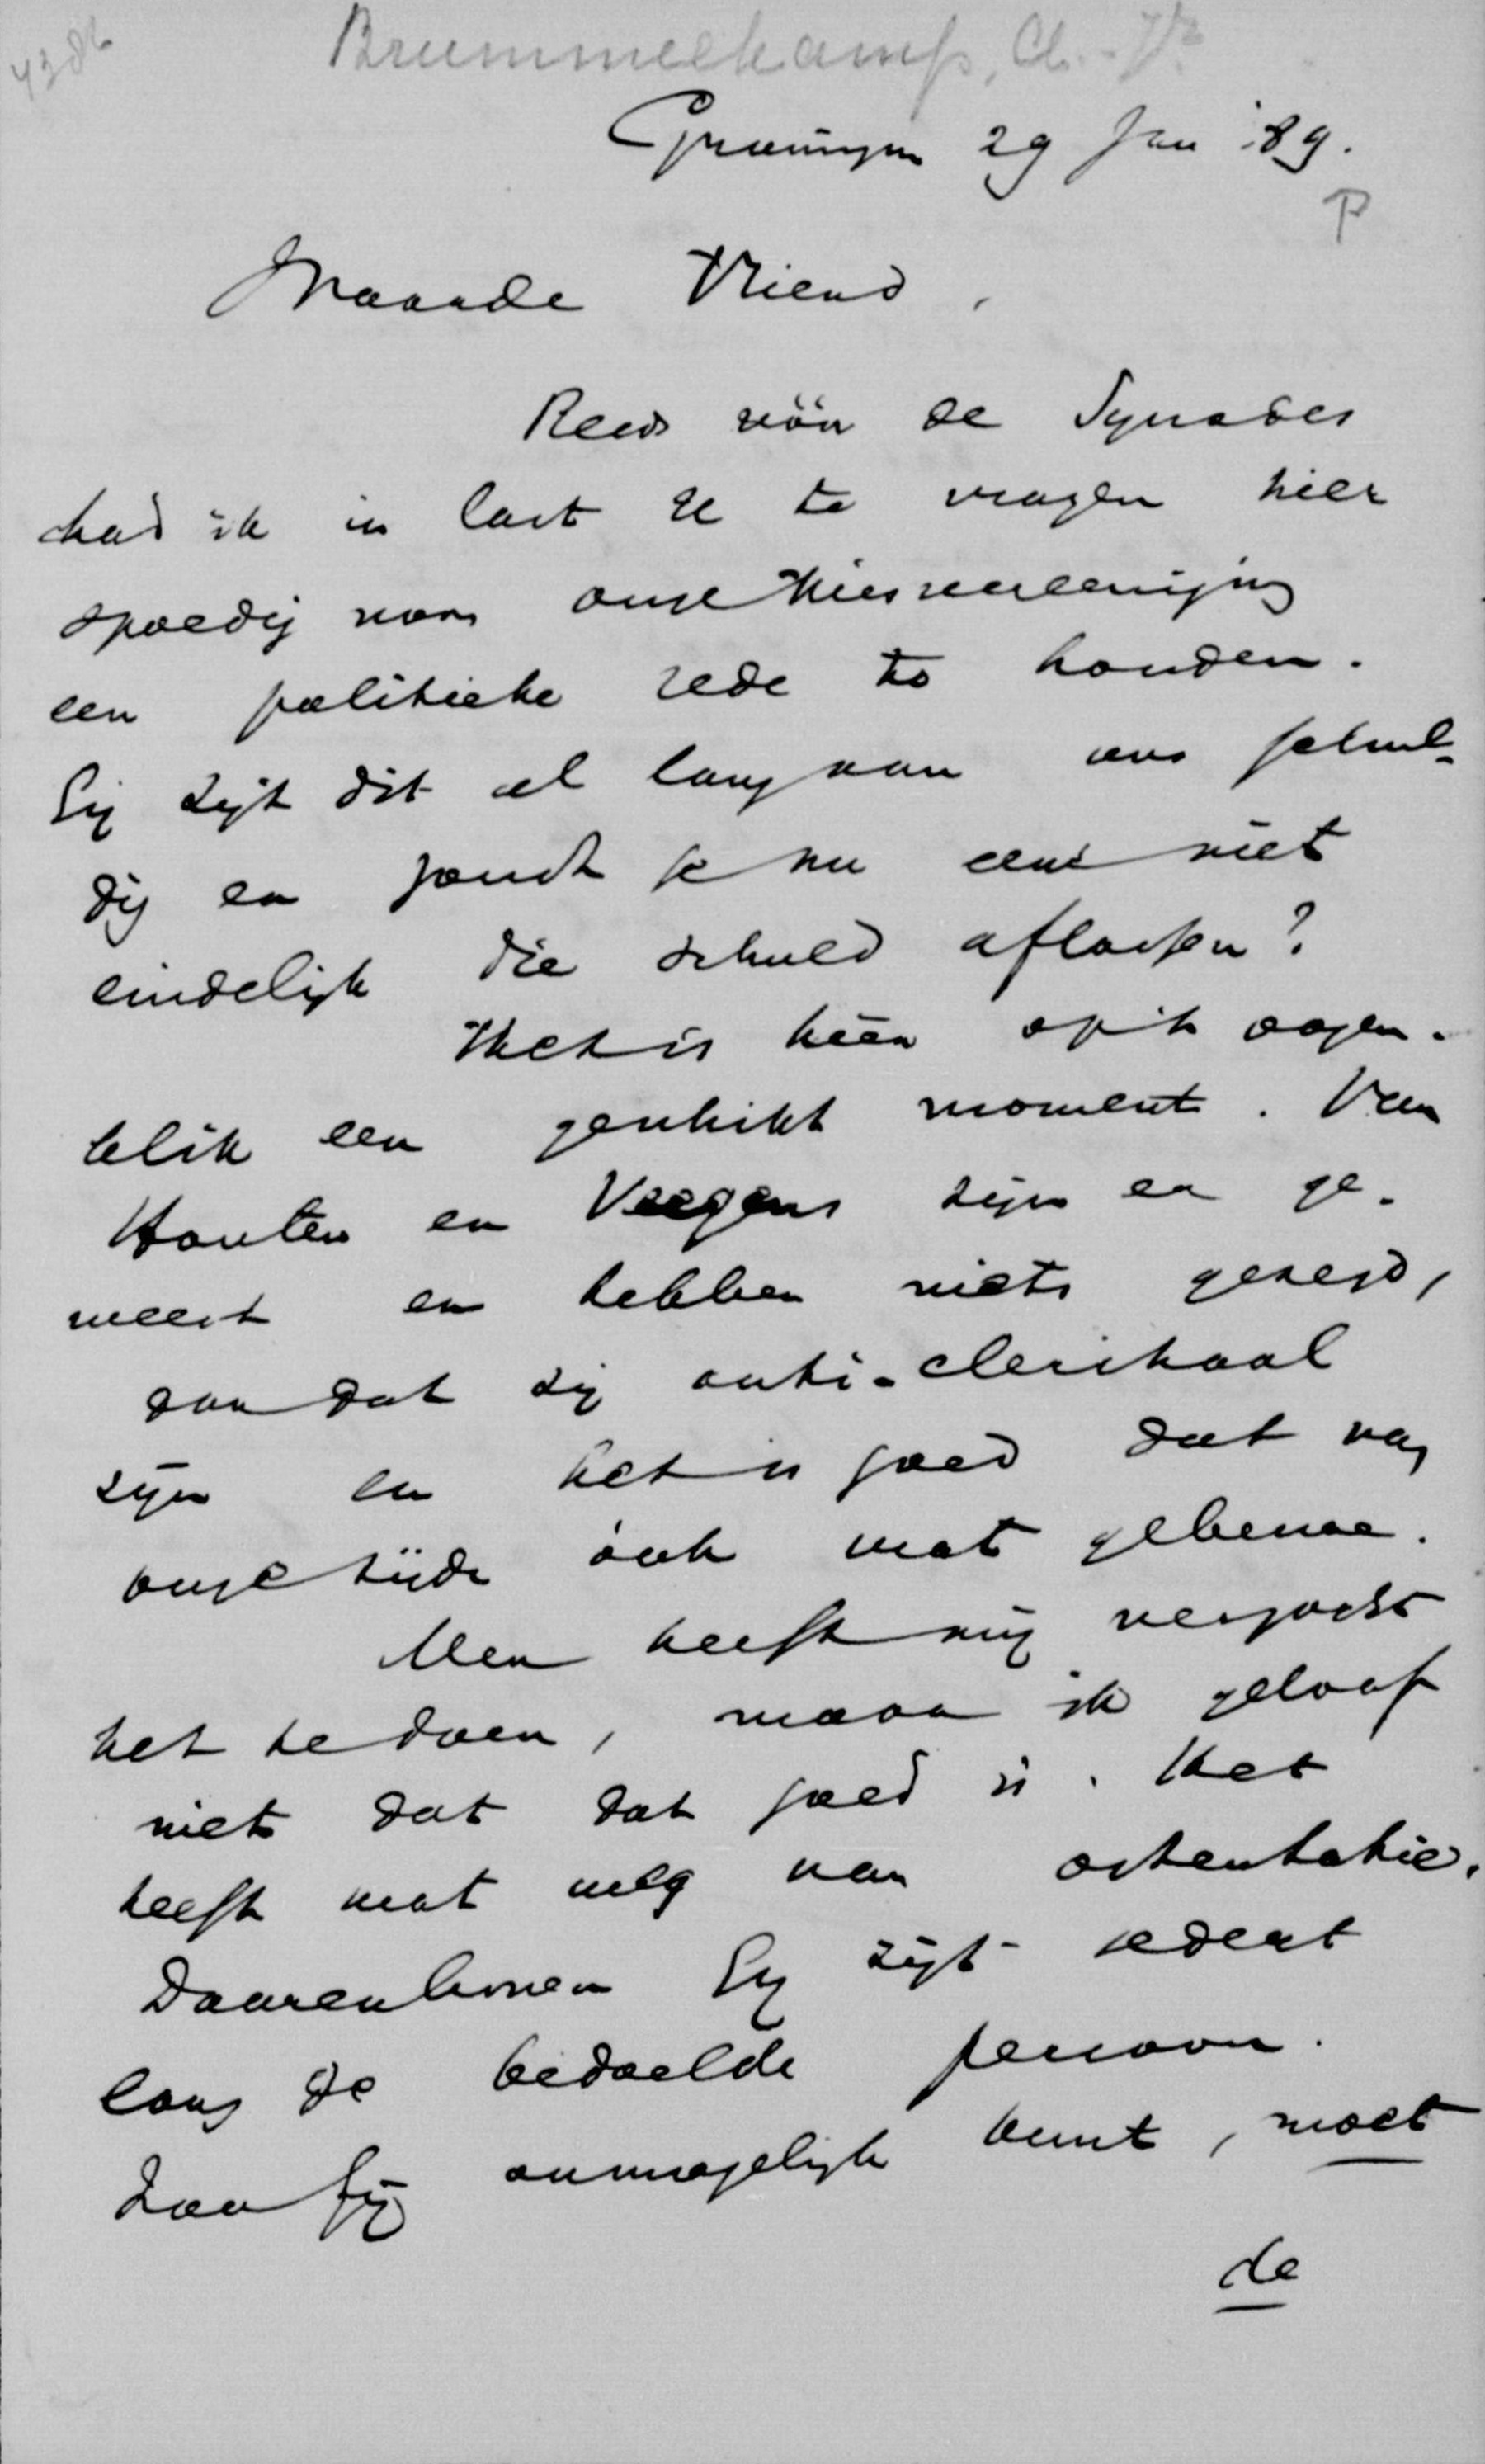 Brummelkamp, A. - Jr
Groningen 29 Jan '89.
P
Waarde Vriend,
Reeds vóór de Synodes
had ik in last U te vragen hier
spoedig voor onze Kiesvereeniging
een politieke rede te houden.
Gij zijt dit al lang aan ons schul-
dig en zoudt je nu eens niet
eindelijk die schuld aflossen?
Het is hier op 't oogen-
blik een geschikt moment. Van
Houten en Veegens zijn er ge-
weest en hebben niets gezegd,
dan dat zij anti-clericaal
zijn en het is goed dat van
onze zijde ook wat gebeure.
Men heeft mij verzocht
het te doen, maar ik geloof
niet dat dat goed is. Het
heeft wat weg van ostentatie.
Daarenboven Gij zijt sedert
lang de bedoelde persoon.
Zoo Gij onmogelijk kunt, moet
de